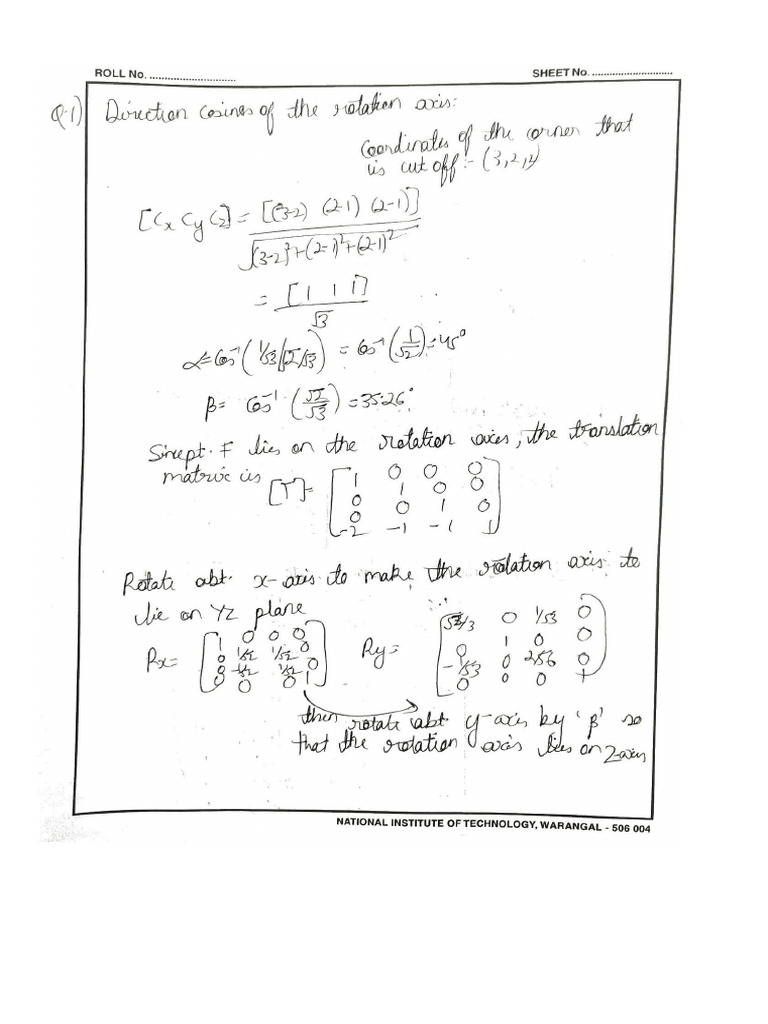 ROLL No. ............................ SHEET No. ............................
Q.1) Direction cosines of the rotation axis:
Coordinates of the corner that
is cut off:- (3,2,2)
[Cx Cy Cz] = [(3-2) (2-1) (2-1)]
√(3-2)²+(2-1)²+(2-1)²
= [1 1 1]
√3
α = Cos⁻¹ (1/√3/√2/√3) = Cos⁻¹ (1/√2) = 45°
β = Cos⁻¹ (√2/√3) = 35.26°
Since pt. F lies on the rotation axis, the translation
matrix is
[T] = [1 0 0 0
0 1 0 0
0 0 1 0
-2 -1 -1 1]
Rotate abt. x-axis to make the rotation axis to
lie on YZ plane
Rx = [1 0 0 0
0 1/√2 1/√2 0
0 -1/√2 1/√2 0
0 0 0 1]
Ry = [ 0 1/√3 0
0 1 0 0
-1/√3 0 0
0 0 0 1]
then rotate abt. y-axis by 'β' so
that the rotation axis lies on Z-axis
NATIONAL INSTITUTE OF TECHNOLOGY, WARANGAL - 506 004